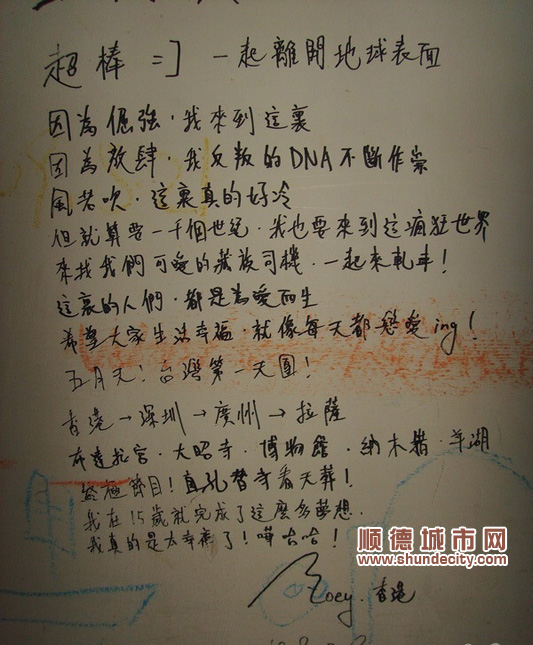 超棒 =] 一起離開地球表面
因為倔強．我來到這裏
因為放肆．我反叛的DNA不斷作祟
風若吹．這裏真的好冷
但就算要一千個世紀．我也要來到這瘋狂世界
來找我們可愛的藏族司機．一起來軋車！
這裏的人們．都是為愛而生
希望大家生活幸福．就像每天都戀愛ing！
五月天！台灣第一天團！
香港→深圳→廣州→拉薩
布達拉宮．大昭寺．博物館．納木錯．羊湖
終極節目！直孔替寺看天葬！
我在15歲就完成了這麼多夢想．
我真的是太幸福了！嘩哈哈！
Zoey．香港
顺德城市网
www.shundecity.com